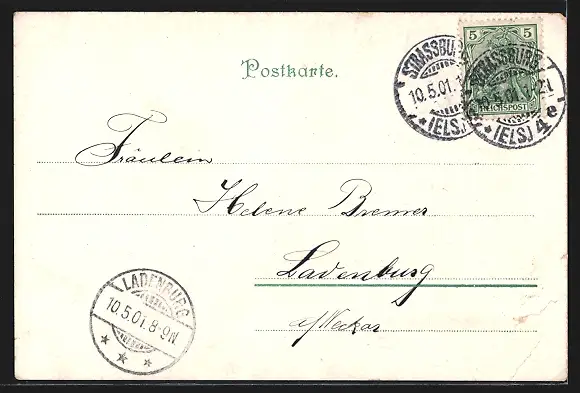 Postkarte.
STRASSBURG
10.5.01.
*(ELS.)
5 5
REICHSPOST
STRASSBURG
10.5.01.
*(ELS.) 4e
Fräulein
Helene Bremer
Ladenburg
a/Neckar
LADENBURG
10.5.01.8-9N.
* * *